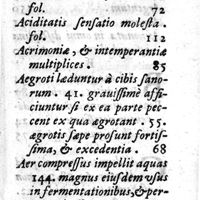 fol. 72
Aciditatis sensatio molesta.
fol. 112
Acrimoniæ, & intemperantiæ
multiplices. 85
Ægroti læduntur à cibis sano-
rum. 41. grauissimè affi-
ciuntur si ex ea parte pec-
cent ex qua ægrotant. 55.
ægrotis sæpe prosunt fortis-
sima, & excedentia. 68
Aer compressus impellit aquas
144. magnus eiusdem vsus
in fermentationibus, & per-